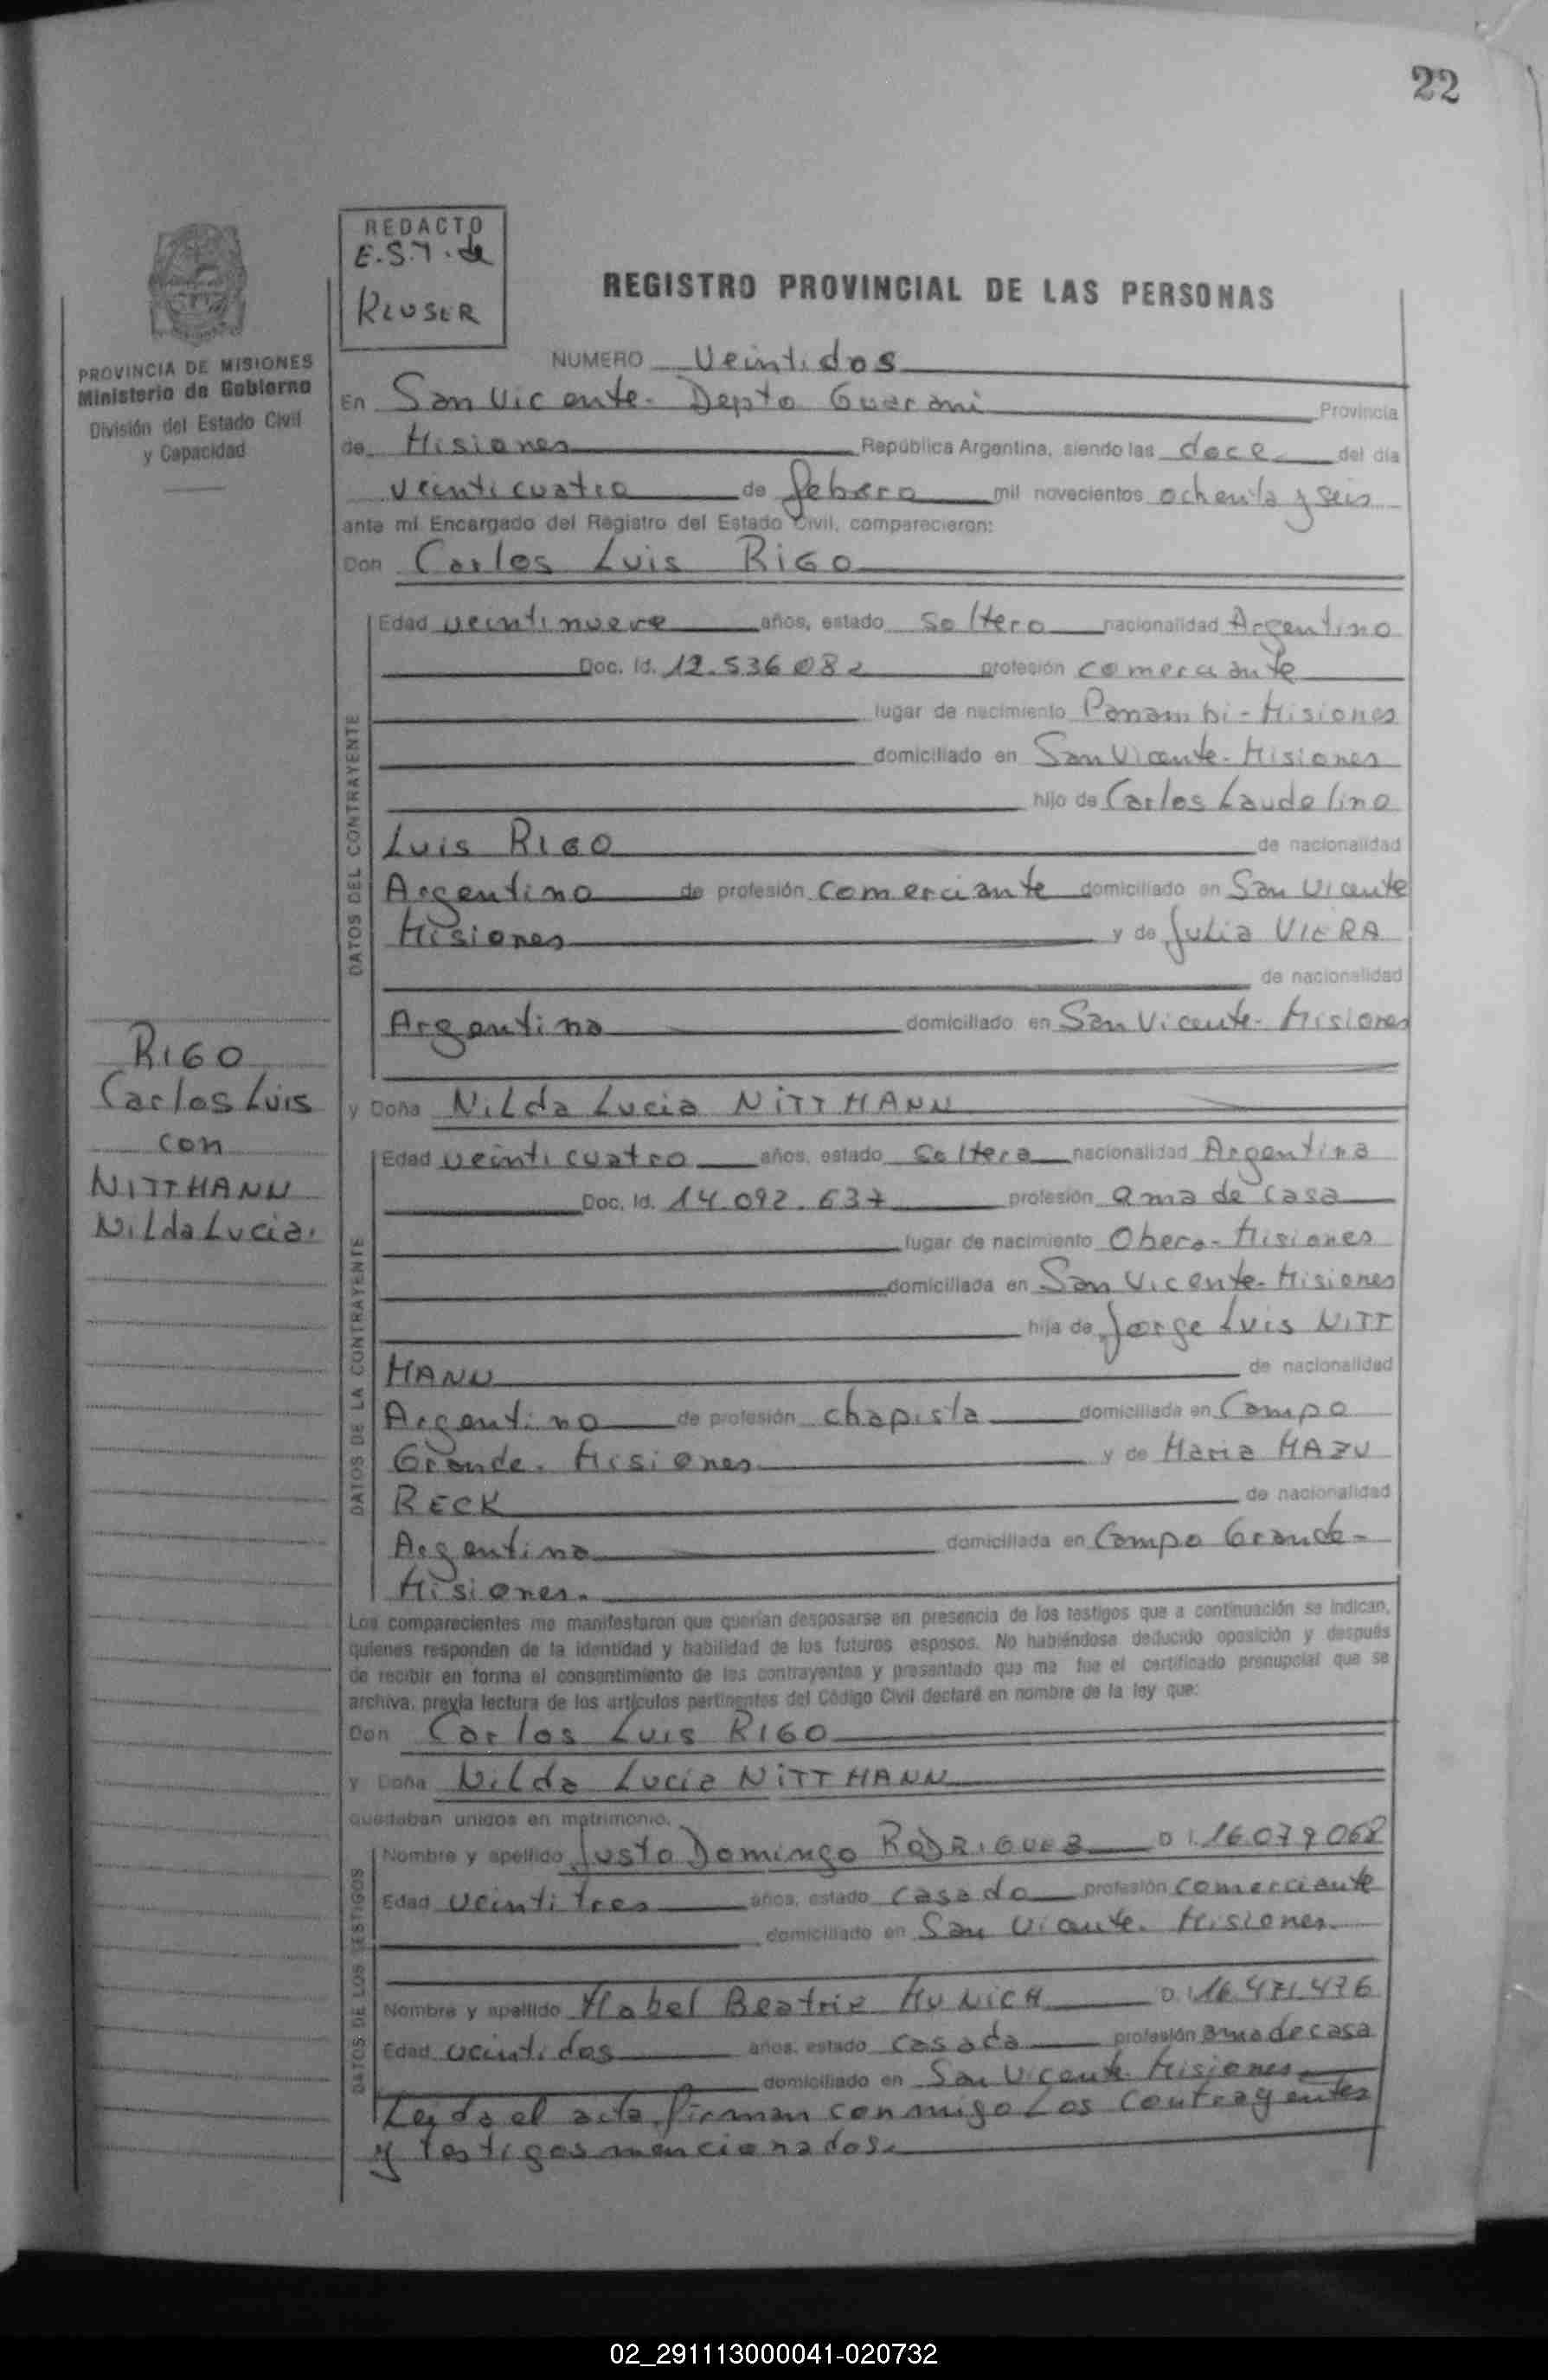 22
REDACTO
E.S.7. de
KLUSER
REGISTRO PROVINCIAL DE LAS PERSONAS
PROVINCIA DE MISIONES
Ministerio de Gobierno
División del Estado Civil
y Capacidad
NUMERO Veintidos
En San Vicente - Depto Guarani Provincia
de Misiones República Argentina, siendo las doce del día
veinticuatro de febrero mil novecientos ochenta y seis
ante mi Encargado del Registro del Estado Civil, comparecieron:
Don Carlos Luis RIGO
DATOS DEL CONTRAYENTE
Edad veintinueve años, estado soltero nacionalidad Argentino
Doc. Id. 12.536.082 profesión comerciante
lugar de nacimiento Panambi - Misiones
domiciliado en San Vicente - Misiones
hijo de Carlos Laudelino
Luis RIGO de nacionalidad
Argentino de profesión comerciante domiciliado en San Vicente
Misiones y de Julia VIERA
de nacionalidad
Argentina domiciliado en San Vicente - Misiones
RIGO
Carlos Luis
con
NITTMANN
Nilda Lucia.
y Doña Nilda Lucia NITTMANN
DATOS DE LA CONTRAYENTE
Edad veinticuatro años, estado soltera nacionalidad Argentina
Doc. Id. 14.092.637 profesión ama de casa
lugar de nacimiento Obera - Misiones
domiciliada en San Vicente - Misiones
hija de Jorge Luis NITT
MANN de nacionalidad
Argentino de profesión chapista domiciliada en Campo
Grande - Misiones y de Maria MAZU
RECK de nacionalidad
Argentina domiciliada en Campo Grande -
Misiones.
Los comparecientes me manifestaron que querían desposarse en presencia de los testigos que a continuación se indican,
quienes responden de la identidad y habilidad de los futuros esposos. No habiéndose deducido oposición y después
de recibir en forma el consentimiento de los contrayentes y presentado que me fue el certificado prenupcial que se
archiva, previa lectura de los artículos pertinentes del Código Civil declaré en nombre de la ley que:
Don Carlos Luis RIGO
y Doña Nilda Lucia NITTMANN
quedaban unidos en matrimonio.
DATOS DE LOS TESTIGOS
Nombre y apellido Justo Domingo RODRIGUEZ D.I. 16.079.068
Edad veintitres años, estado casado profesión comerciante
domiciliado en San Vicente - Misiones.
Nombre y apellido Mabel Beatriz MUNICH D.I. 16.471.476
Edad veintidos años, estado casada profesión ama de casa
domiciliado en San Vicente Misiones
Leida el acta firman conmigo Los contrayentes
y testigos mencionados.
02_291113000041-020732